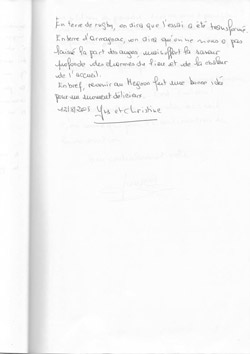 En terre de rugby, on dira que l'essai a été transformé.
En terre d'Armagnac, on dira qu'on ne nous a pas
laissé la part des anges mais offert la saveur
profonde des charmes du lieu et de la chaleur
de l'accueil.
En bref, revenir au fut une bonne idée
pour un moment délicieux.
Yves et Christine